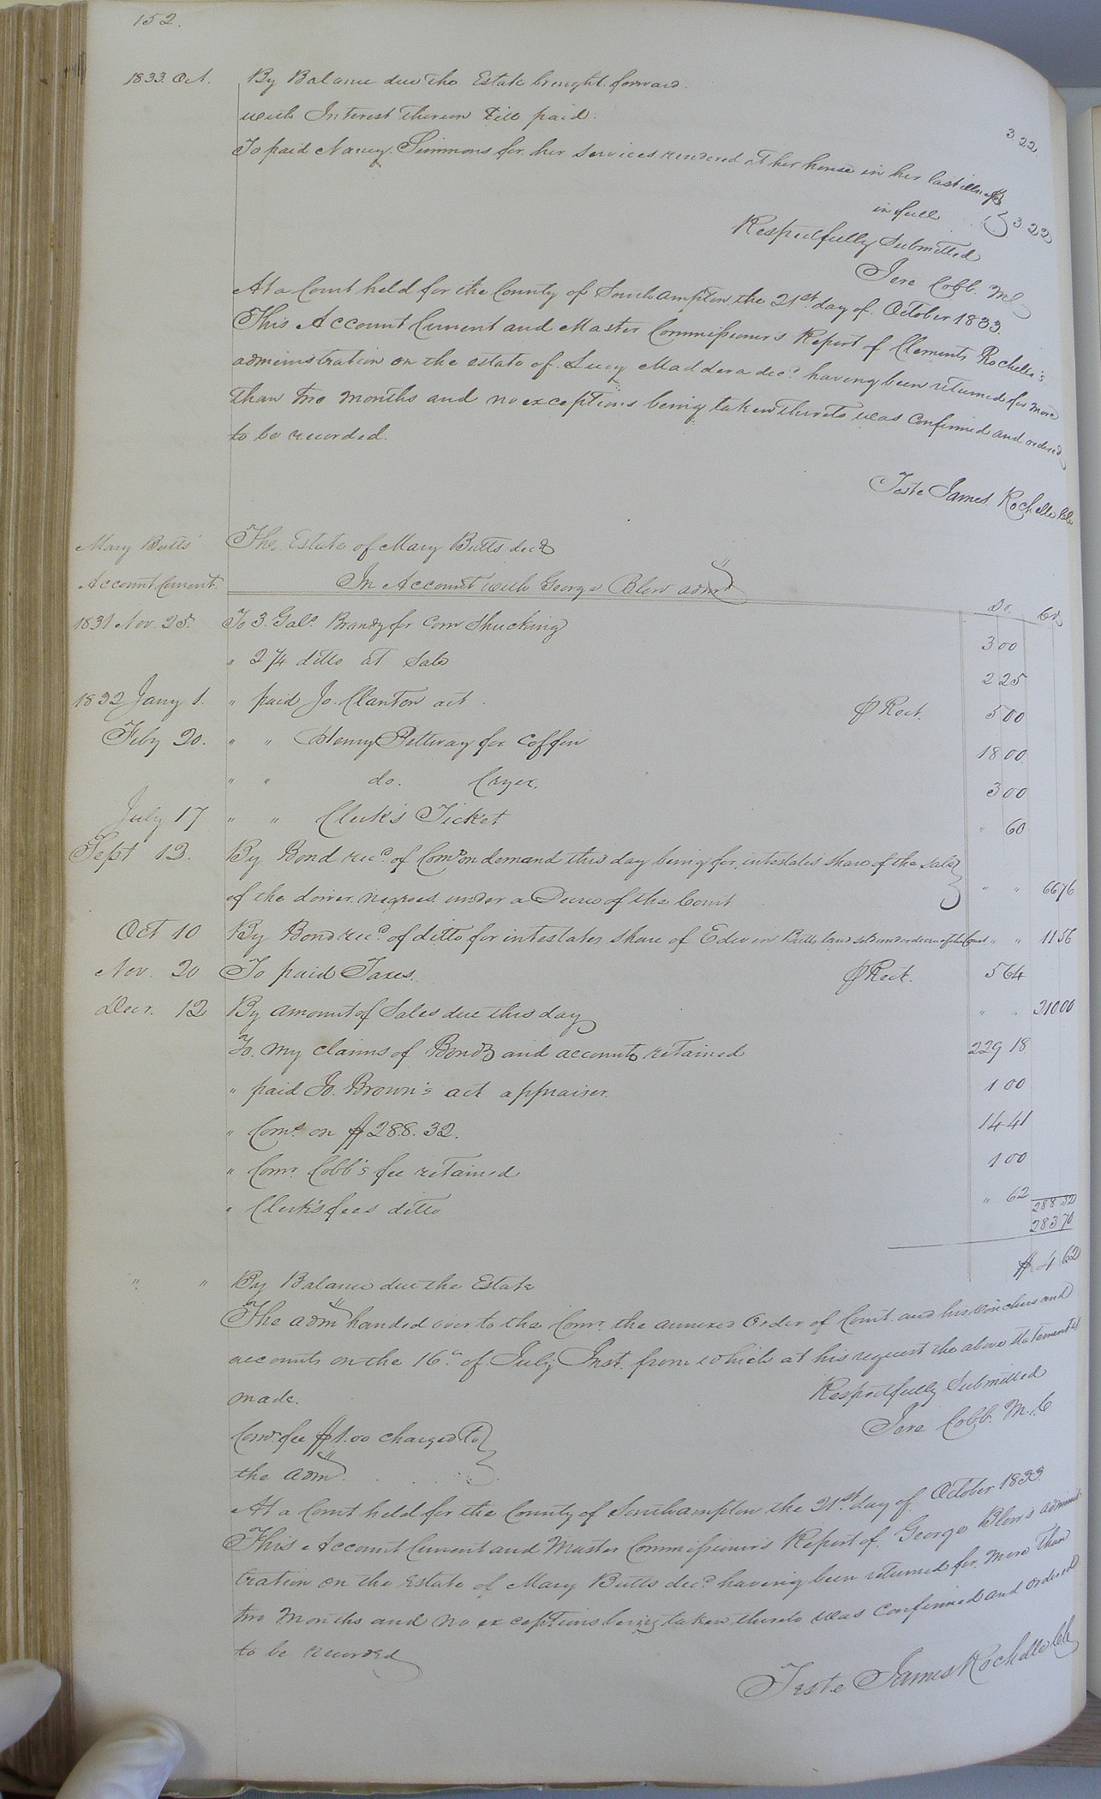 152.
1833. Oct. By Balance due the Estate brought forward
with Interest thereon till paid. 322
To paid Nancy Simmons for her services rendered at her house in her last illness
in full $322
Respectfully Submitted
Jere Cobb. M C
At a Court held for the County of Southampton the 21st. day of October 1833.
This Account Current and Master Commissioner's Report of Clements Rochelle's
administration on the estate of Lucy Maddera decd. having been returned for more
than two months and no exceptions being taken thereto was confirmed and ordered
to be recorded.
Teste James Rochelle Clk
Mary Butts' The Estate of Mary Butts decd
Account Current. In Account with George Blow admr
Dr. Cr.
1831 Nov. 25. To 3. Gals. Brandy for Corn Shucking 3 00
" 2 1/4 ditto at Sale 2 25
1832 Jany 1. " paid Jo. Clanton act. ⅌ Rect. 5 00
Feby 20. " " Henry Pettway for Coffin 18 00
" " do. Cryer. 3 00
July 17 " " Clerk's Ticket " 60
Sept 13. By Bond recd. of Comrs on demand this day being for intestate's share of the sale
of the dower negroes under a Decree of the Court " " 66 76
Oct 10 By Bond recd. of ditto for intestates share of Edwin Butts land sold under decree of the Court " " 11 56
Nov. 20 To paid Taxes. ⅌ Rect. 5 64
Decr. 12 By amount of Sales due this day " " 210 00
To my claims of Bonds and accounts retained 229 18
" paid Jo. Brown's act appraiser. 1 00
" Coms. on $288.32. 14 41
" Comr. Cobb's fee retained 1 00
" Clerk's fees ditto " 62 288 32
283 70
" " By Balance due the Estate $ 4 62
The admr handed over to the Comr. the annexed Order of Court and his vouchers and
accounts on the 16th of July Inst. from which at his request the above statement is
made. Respectfully Submitted
Jere Cobb. M. C
Comr. fee $1.00 charged to
the admr.
At a Court held for the County of Southampton the 21st. day of October 1833.
This Account Current and Master Commissioner's Report of George Blow's adminis-
tration on the Estate of Mary Butts decd. having been returned for more than
two months and no exceptions being taken thereto was confirmed and ordered
to be recorded
Teste James Rochelle Clk